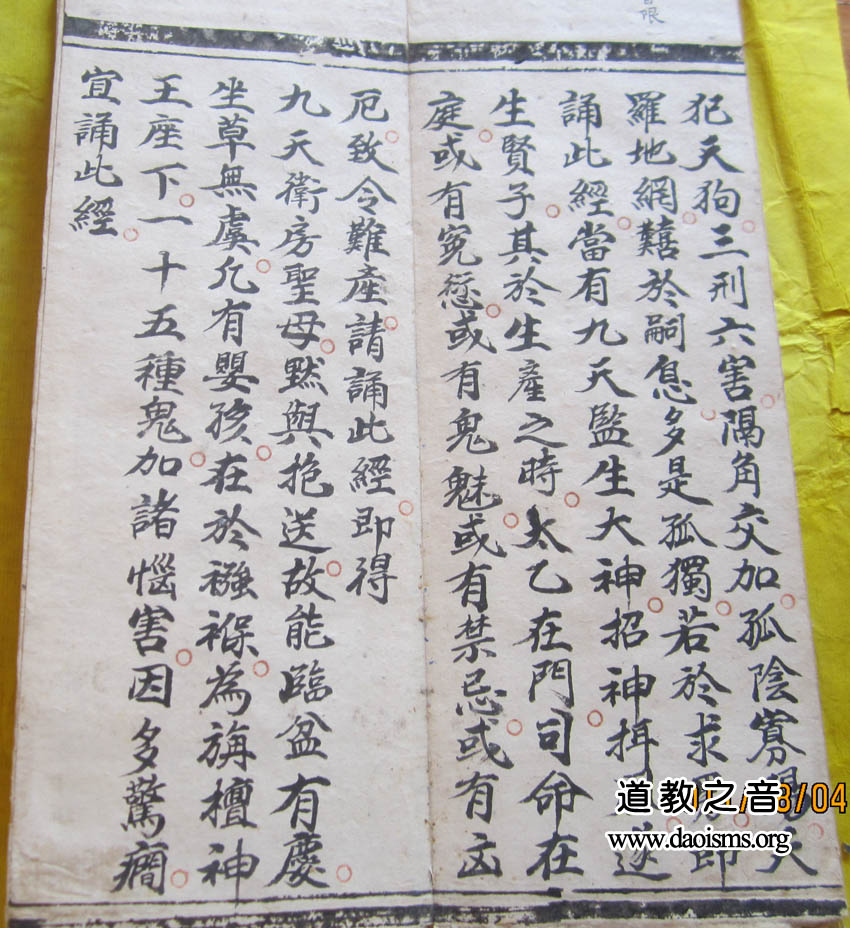 犯天狗三刑六害隔角交加孤陰寡陽天
羅地網囏於嗣息多是孤獨若於求即
誦此經當有九天監生大神招神遂
生賢子其於生產之時太乙在門司命在
庭或有冤愆或有鬼魅或有禁忌或有凶
厄致令難產請誦此經即得
九天衛房聖母默與抱送故能臨盆有慶
坐草無虞凢有嬰孩在於襁褓為旃檀神
王座下一十五種鬼加諸惱害因多驚癎
宜誦此經
道教之音
www.daoisms.org